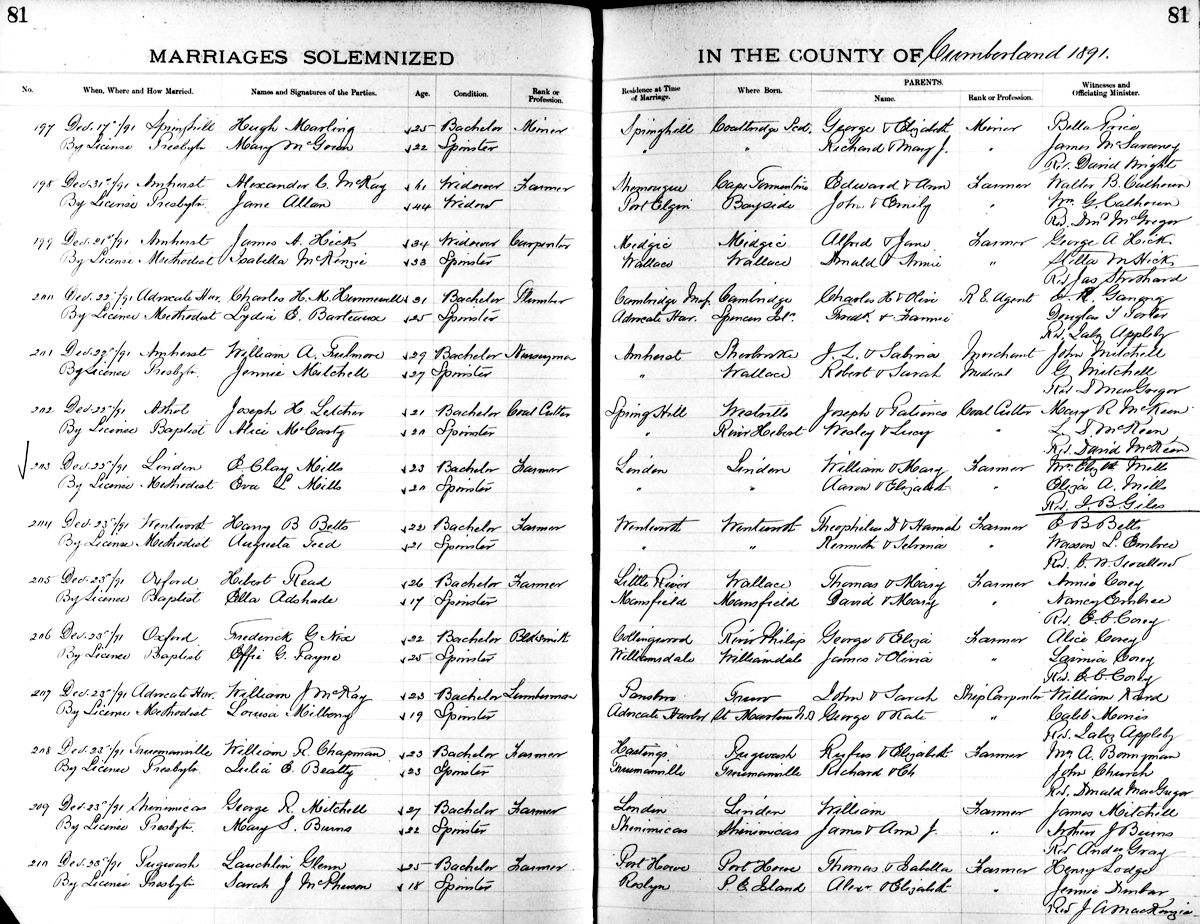 81 81
MARRIAGES SOLEMNIZED IN THE COUNTY OF Cumberland 1891.
No. When, Where and How Married. Names and Signatures of the Parties. Age. Condition. Rank or Profession. Residence at Time of Marriage. Where Born. PARENTS. Name. Rank or Profession. Witnesses and Officiating Minister.
197 Dec. 17th/91 Springhill Hugh Marling 25 Bachelor Miner Springhill Coatbridge Scot. George & Elizabeth Miner Bella Price
By License Presbytn. Mary McGowan 22 Spinster " Richard & Mary J. " James McSavaney
Rev. David Wright
198 Dec. 31st/91 Amherst Alexander C. McKay 61 Widower Farmer Shemogue Cape Tormentine Edward & Ann Farmer Walter B. Calhoun
By License Presbytn. Jane Allan 44 Widow Port Elgin Bayside John & Emily " Wm. G. Calhoun
Rev. Dmd McGregor
199 Dec. 21st/91 Amherst James A. Hicks 34 Widower Carpenter Midgic Midgic Alfred & Jane Farmer George A Hicks
By License Methodist Isabella McKenzie 23 Spinster Wallace Wallace Donald & Annie " Stella M Hicks
Rev Jas Strothard
200 Dec. 22nd/91 Advocate Har. Charles H. M. Hunnewell 21 Bachelor Plumber Cambridge Mas. Cambridge Charles H & Olive R. E. Agent Ganong
By License Methodist Lydia E. Barteaux 25 Spinster Advocate Har. Spencers Isl. Fredk. & Fannie Douglas T Porter
Rev. Jabez Appleby
201 Dec. 29th/91 Amherst William A. Fulmore 29 Bachelor Nurseryman Amherst Sherbrooke J. L. & Sabina Merchant John Mitchell
By License Presbytn. Jennie Mitchell 27 Spinster " Wallace Robert & Sarah Medical G Mitchell
Rev. D MacGregor
202 Dec. 22nd/91 Athol Joseph H. Letcher 21 Bachelor Coal Cutter Spring Hill Westville Joseph & Patience Coal Cutter Mary R. McKeen
By License Baptist Alice McCarty 20 Spinster " River Hebert Wesley & Lucy " L. S. McKeen
Rev. David McKeen
203 Dec. 22nd/91 Linden E. Clay Mills 23 Bachelor Farmer Linden Linden William & Mary Farmer Mrs. Elizth Mills
By License Methodist Eva L Mills 20 Spinster " " Aaron & Elizabeth " Eliza A. Mills
Rev. J. B. Giles
204 Dec. 23rd/91 Wentworth Harry B Betts 22 Bachelor Farmer Wentworth Wentworth Theophilus D & Hannah Farmer E B Betts
By License Methodist Augusta Teed 21 Spinster " " Kenneth & Selvina " Wasson L. Embree
Rev. C. W. Swallow
205 Dec. 23rd/91 Oxford Hibert Read 26 Bachelor Farmer Little River Wallace Thomas & Mary Farmer Annie Corey
By License Baptist Ella Adshade 17 Spinster Mansfield Mansfield David & Mary " Nancy Embree
Rev. E. C Corey
206 Dec. 23rd/91 Oxford Frederick G. Nix 22 Bachelor Blksmith Collingwood River Philip George & Eliza Farmer Alice Corey
By License Baptist Effie G. Payne 25 Spinster Williamsdale Williamsdale James & Olivia " Lavinia Corey
Rev. E. C Corey
207 Dec. 23rd/91 Advocate Har. William J McKay 23 Bachelor Lumberman Parrsboro Truro John & Sarah Ship Carpenter William Kard
By License Methodist Louisa Milbery 19 Spinster Advocate Harbor St Martins N.B George & Kate " Caleb Morris
Rev. Jabez Appleby
208 Dec. 23rd/91 Truemanville William R. Chapman 23 Bachelor Farmer Hastings Pugwash Rufus & Elizabeth Farmer Mrs A. Bonnyman
By License Presbytn. Julia E. Beatty 23 Spinster Truemanville Truemanville Richard & Eh John Church
Rev. Donald MacGregor
209 Dec. 23rd/91 Shinimicas George R. Mitchell 27 Bachelor Farmer Linden Linden William Farmer James Mitchell
By License Presbytn. Mary S. Burns 22 Spinster Shinimicas Shinimicas James & Ann J. " Arthur J Burns
Rev Andw Gray
210 Dec. 23rd/91 Pugwash Lauchlin Glenn 25 Bachelor Farmer Port Howe Port Howe Thomas & Isabella Farmer Henry Lodge
By License Presbytn. Sarah J McPherson 18 Spinster Roslyn P. E. Island Alexr. & Elizabeth " Jennie Dunbar
Rev J A MacKenzie